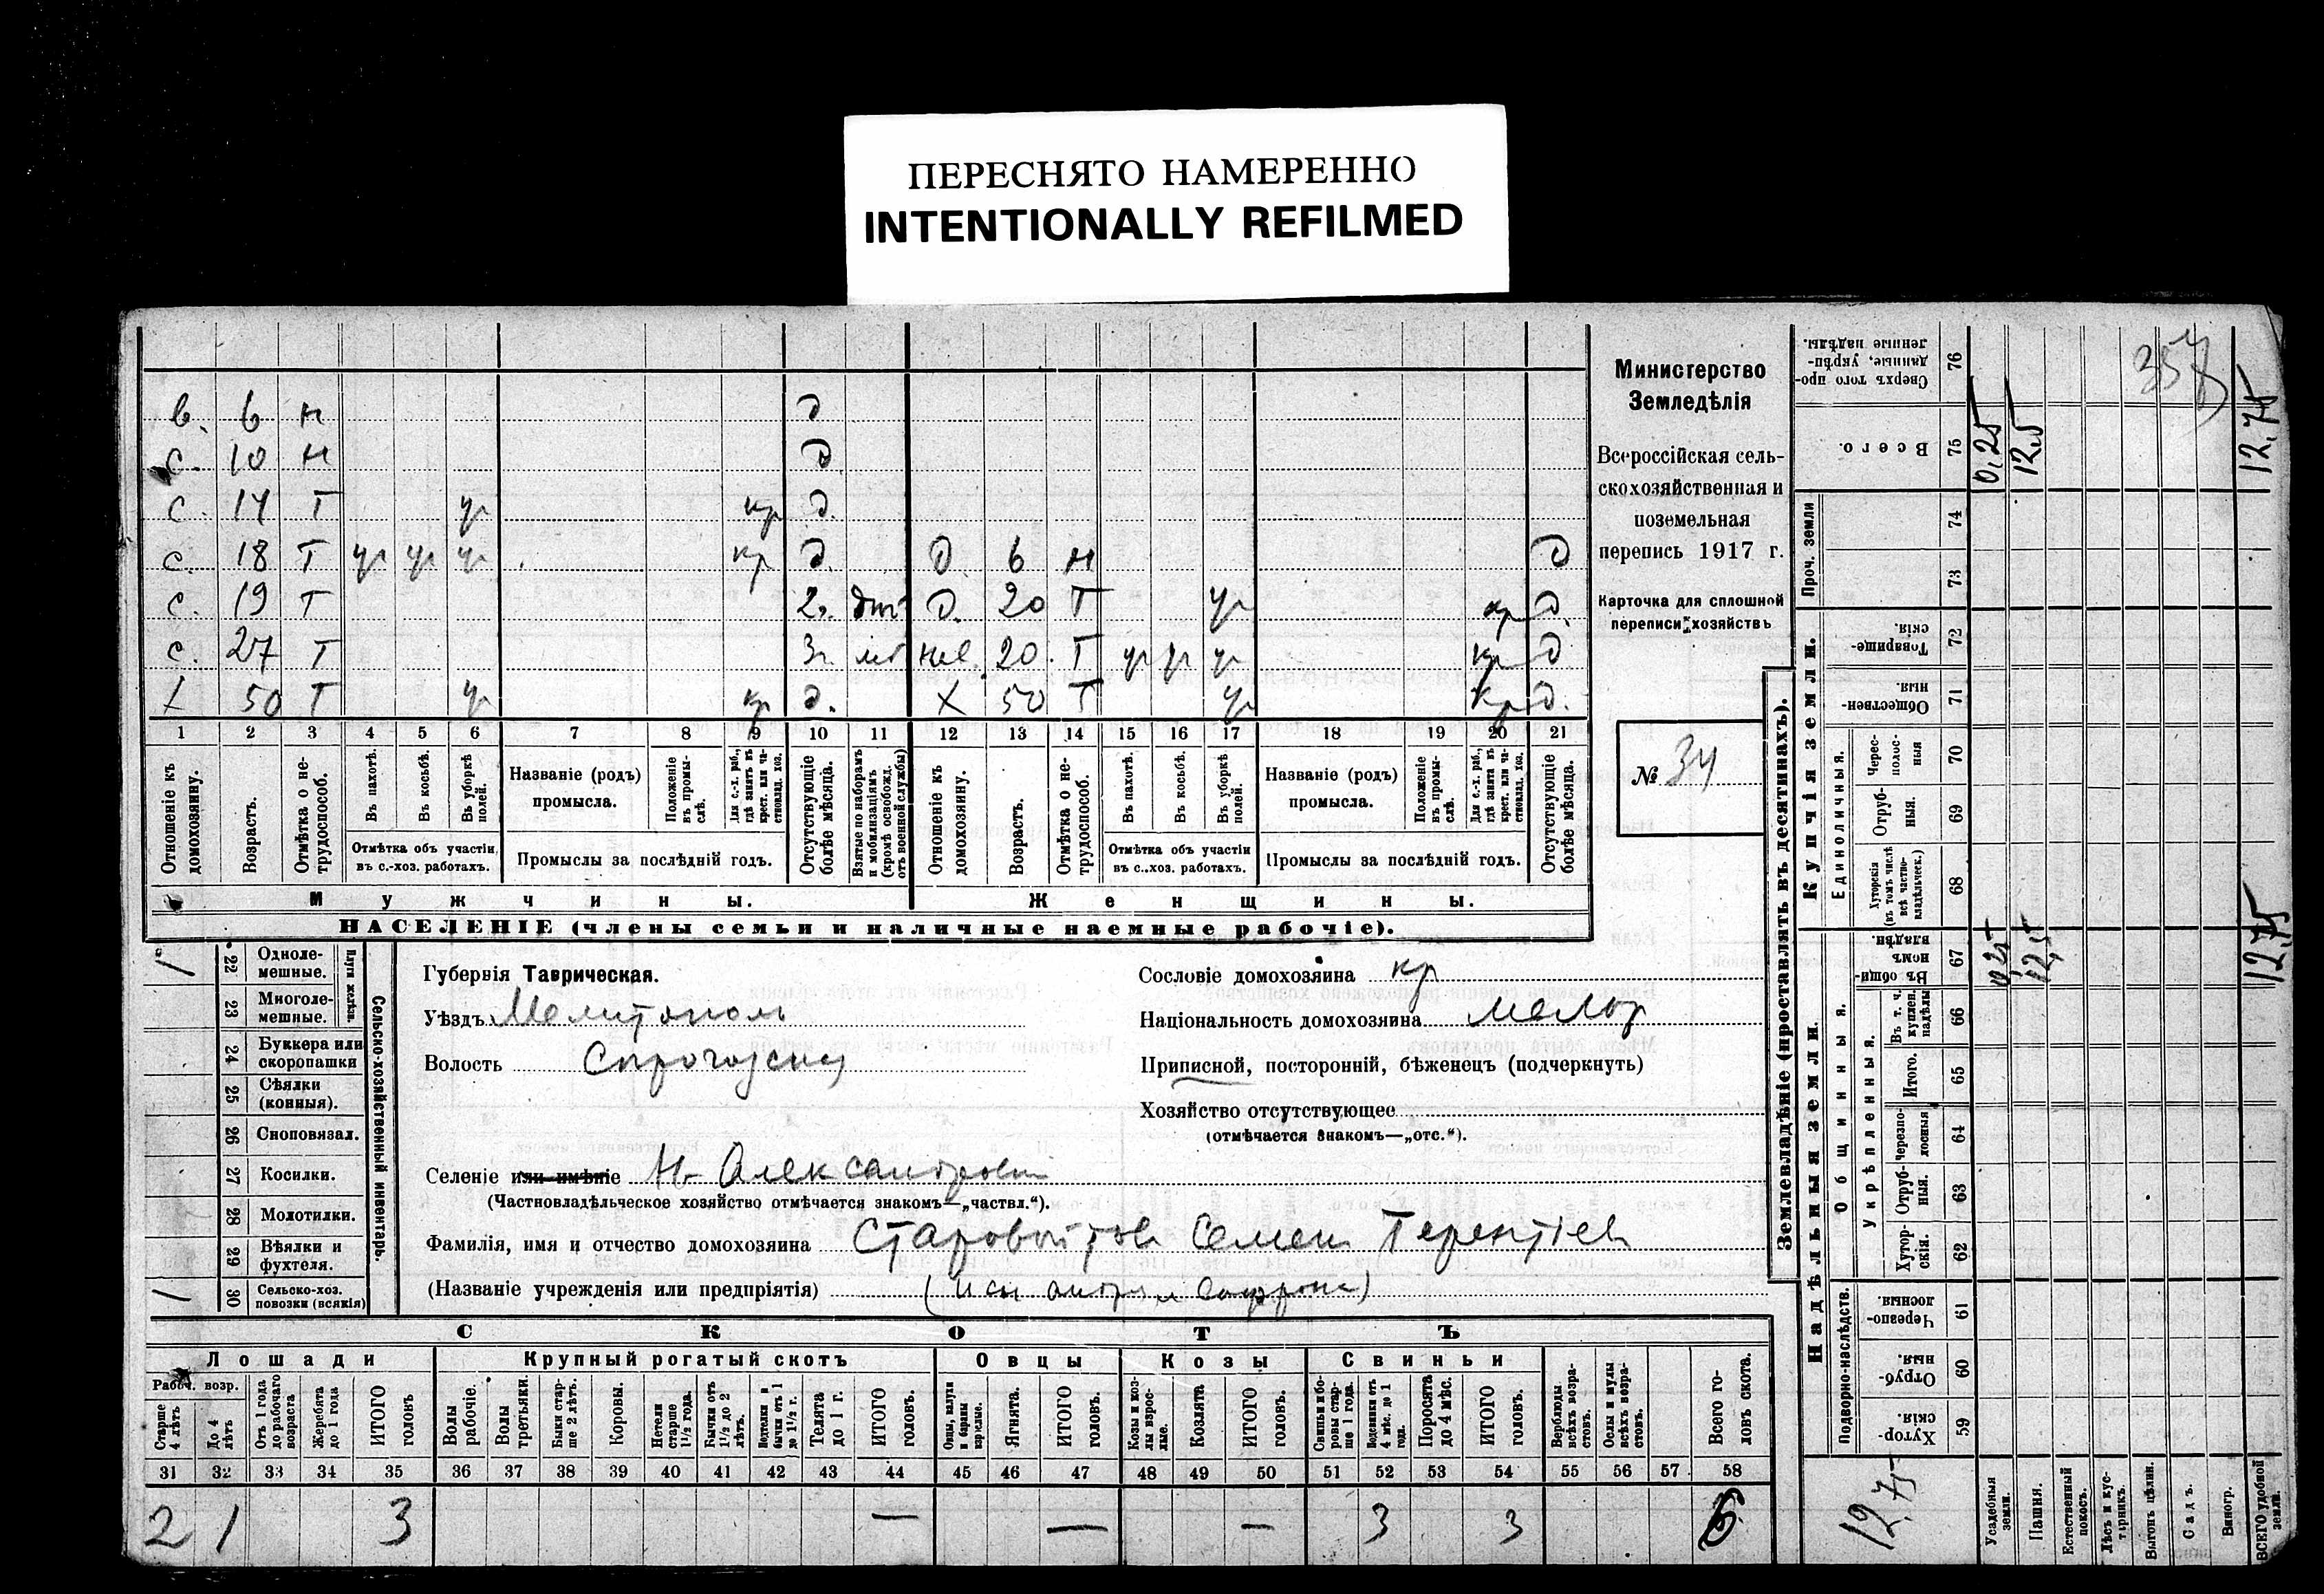 ПЕРЕСНЯТО НАМЕРЕННО
INTENTIONALLY REFILMED
в. 6 н д
с. 10 н д
с. 14 Т ур кр д.
с. 18 Т ур ур ур кр д. д. 6 н д
с. 19 Т 2. д. 20 Т ур кр д.
с. 27 Т 3 г. нев. 20. Т ур ур ур кр д
х 50 Т ур кр д. х 50 Т ур кр д.
1 2 3 4 5 6 7 8 9 10 11 12 13 14 15 16 17 18 19 20 21
Отношеніе къ домохозяину.
Возрастъ.
Отмѣтка о нетрудоспособ.
Въ пахотѣ.
Въ косьбѣ.
Въ уборкѣ полей.
Названіе (родъ) промысла.
Положеніе въ промыслѣ.
Для с.-х. раб., гдѣ занятъ въ крест. или частновлад. хоз.
Отсутствующіе болѣе мѣсяца.
Взятые по наборамъ и мобилизаціямъ (кромѣ освобожд. отъ военной службы)
Отношеніе къ домохозяину.
Возрастъ.
Отмѣтка о нетрудоспособ.
Въ пахотѣ.
Въ косьбѣ.
Въ уборкѣ полей.
Названіе (родъ) промысла.
Положеніе въ промыслѣ.
Для с.-х. раб., гдѣ занята въ крест. или частновлад. хоз.
Отсутствующіе болѣе мѣсяца.
Отмѣтка объ участіи въ с.-хоз. работахъ.
Промыслы за послѣдній годъ.
Отмѣтка объ участіи въ с.-хоз. работахъ.
Промыслы за послѣдній годъ.
Мужчины. Женщины.
НАСЕЛЕНІЕ (члены семьи и наличные наемные рабочіе).
Министерство
Земледѣлія
Всероссійская сель-
скохозяйственная и
поземельная
перепись 1917 г.
Карточка для сплошной
переписи хозяйствъ
№ 34
1 22 Одноле-мешные.
23 Многоле-мешные.
Плуги желѣзн.
24 Буккера или скоропашки
25 Сѣялки (конныя).
26 Сноповязал.
27 Косилки.
28 Молотилки.
29 Вѣялки и фухтеля.
1 30 Сельско-хоз. повозки (всякія)
Сельско-хозяйственный инвентарь.
Губернія Таврическая.
Уѣздъ Мелитополь
Волость
Селеніе или имѣніе Н-Александровка
(Частновладѣльческое хозяйство отмѣчается знакомъ—„частвл.“).
Фамилія, имя и отчество домохозяина Старовойтов Семен Терентіев
(Названіе учрежденія или предпріятія)
Сословіе домохозяина кр
Національность домохозяина малор
Приписной, посторонній, бѣженецъ (подчеркнуть)
Хозяйство отсутствующее
(отмѣчается знакомъ—„отс.“).
СКОТЪ
Лошади Крупный рогатый скотъ Овцы Козы Свиньи
Рабоч. возр.
Старше 4 лѣтъ
До 4 лѣтъ
Отъ 1 года до рабочаго возраста
Жеребята до 1 года
ИТОГО головъ
Волы рабочіе.
Волы третьяки.
Быки старше 2 лѣтъ.
Коровы.
Нетели старше 1½ года.
Бычки отъ 1½ до 2 лѣтъ.
Подтелки и бычки отъ 1 до 1½ г.
Телята до 1 г.
ИТОГО головъ.
Овцы, валухи и бараны взрослые.
Ягнята.
ИТОГО головъ.
Козы и козлы взрослые.
Козлята
ИТОГО головъ.
Свиньи и боровы старше 1 года.
Подсвинки отъ 4 мѣс. до 1 года.
Поросята до 4 мѣс.
ИТОГО головъ.
Верблюды всѣхъ возрастовъ.
Ослы и мулы всѣхъ возрастовъ.
Всего головъ скота.
31 32 33 34 35 36 37 38 39 40 41 42 43 44 45 46 47 48 49 50 51 52 53 54 55 56 57 58
2 1 3 — — — 3 3 6
Землевладѣніе (проставлять въ десятинахъ).
Надѣльныя земли. Купчія земли. Проч. земли
Подворно-наслѣдств. Общинныя. Единоличныя.
Укрѣпленныя.
Хуторскія. 59
Отрубныя. 60
Черезполосныя. 61
Хуторскія. 62
Отрубныя. 63
Черезполосныя 64
Итого. 65
Въ т. ч. куплен. надѣлы 66
Въ общинномъ владѣн. 67
Хуторскія (въ томъ числѣ всѣ частновладѣльческ.) 68
Отрубныя. 69
Чересполосныя 70
Общественныя. 71
Товарищескія. 72
73
74
Всего. 75
Сверхъ того проданные, укрѣпленные надѣлы. 76
12,75
Усадебныя земли. 0,25 0,25
Пашня. 12,5 12,5
Естественный покосъ.
Лѣсъ и кустарникъ.
Выгонъ цѣлин.
Садъ.
Виногр.
ВСЕГО удобной земли. 12,75 12,75
357